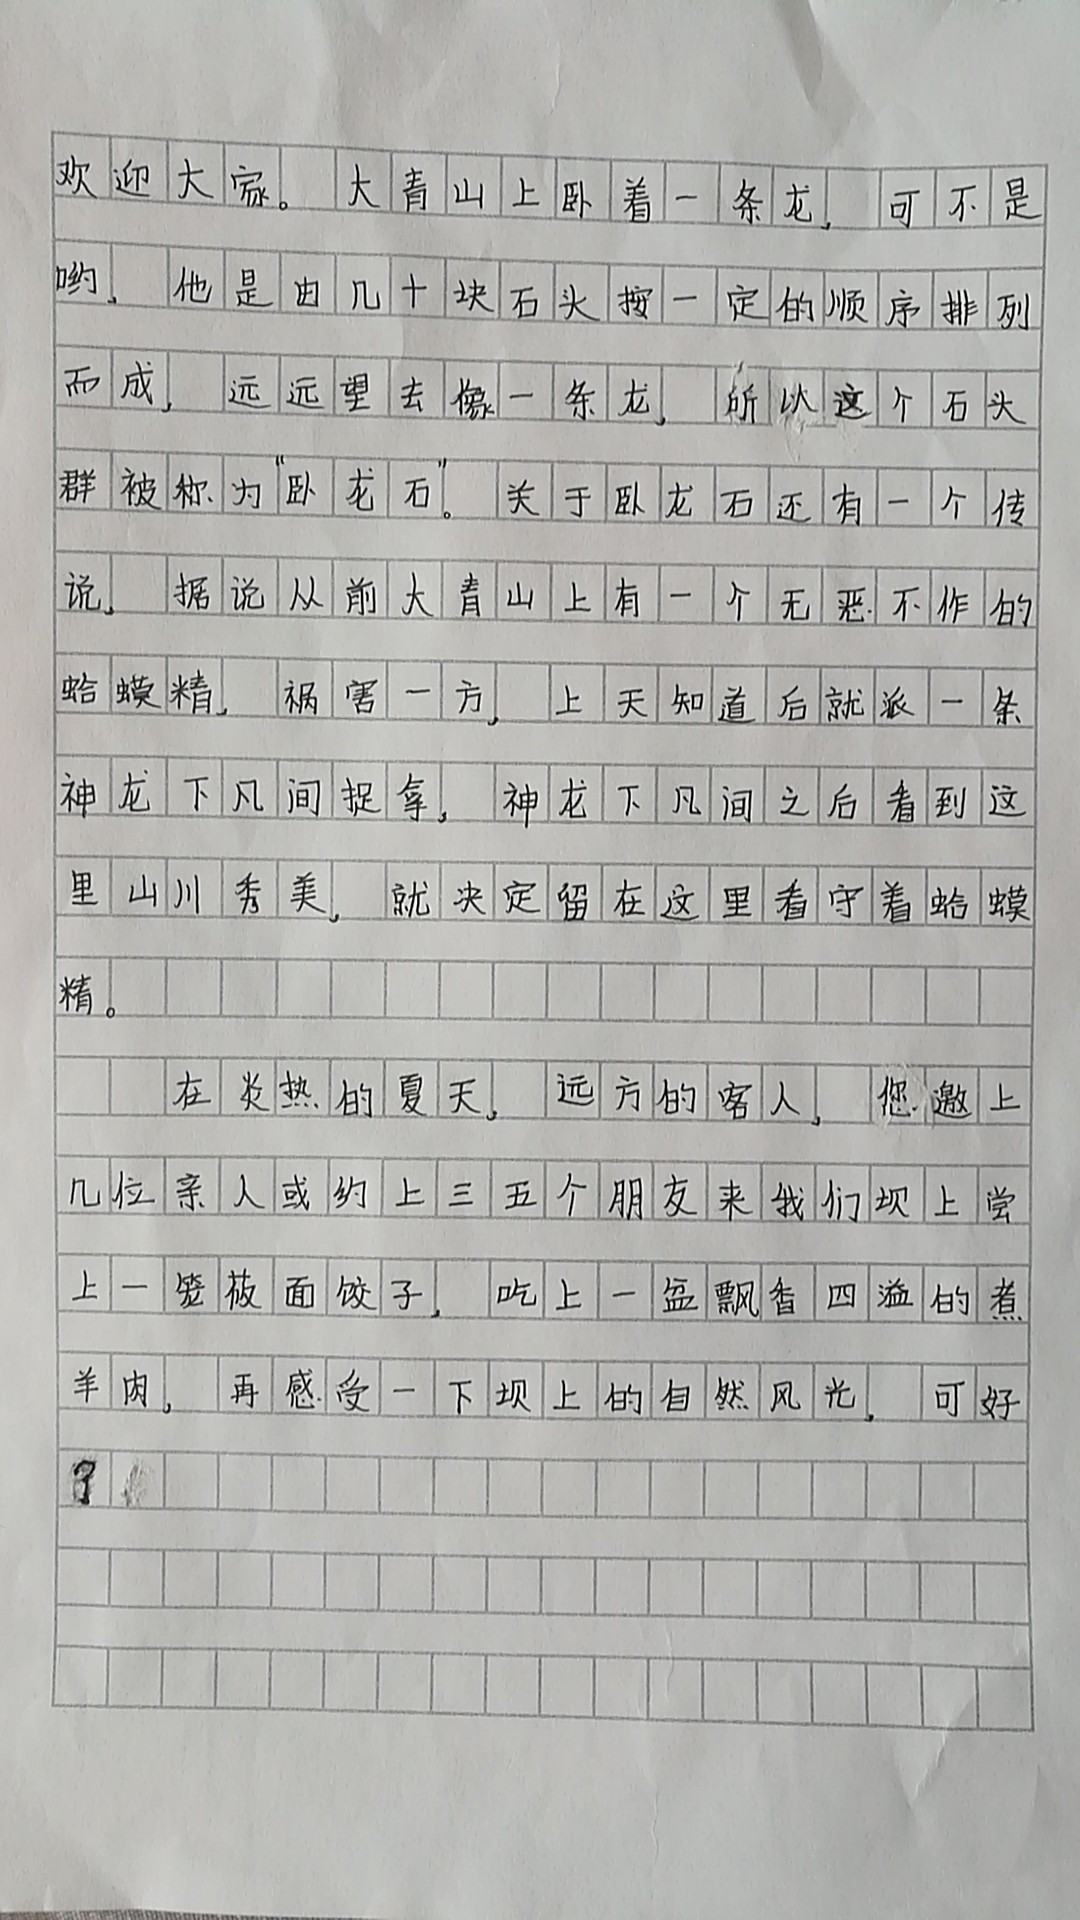 欢迎大家。大青山上卧着一条龙，可不是
哟，他是由几十块石头按一定的顺序排列
而成，远远望去像一条龙，所以这个石头
群被称为“卧龙石”。关于卧龙石还有一个传
说，据说从前大青山上有一个无恶不作的
蛤蟆精，祸害一方，上天知道后就派一条
神龙下凡间捉拿，神龙下凡间之后看到这
里山川秀美，就决定留在这里看守着蛤蟆
精。
在炎热的夏天，远方的客人，您邀上
几位亲人或约上三五个朋友来我们坝上尝
上一笼莜面饺子，吃上一盆飘香四溢的煮
羊肉，再感受一下坝上的自然风光，可好
？